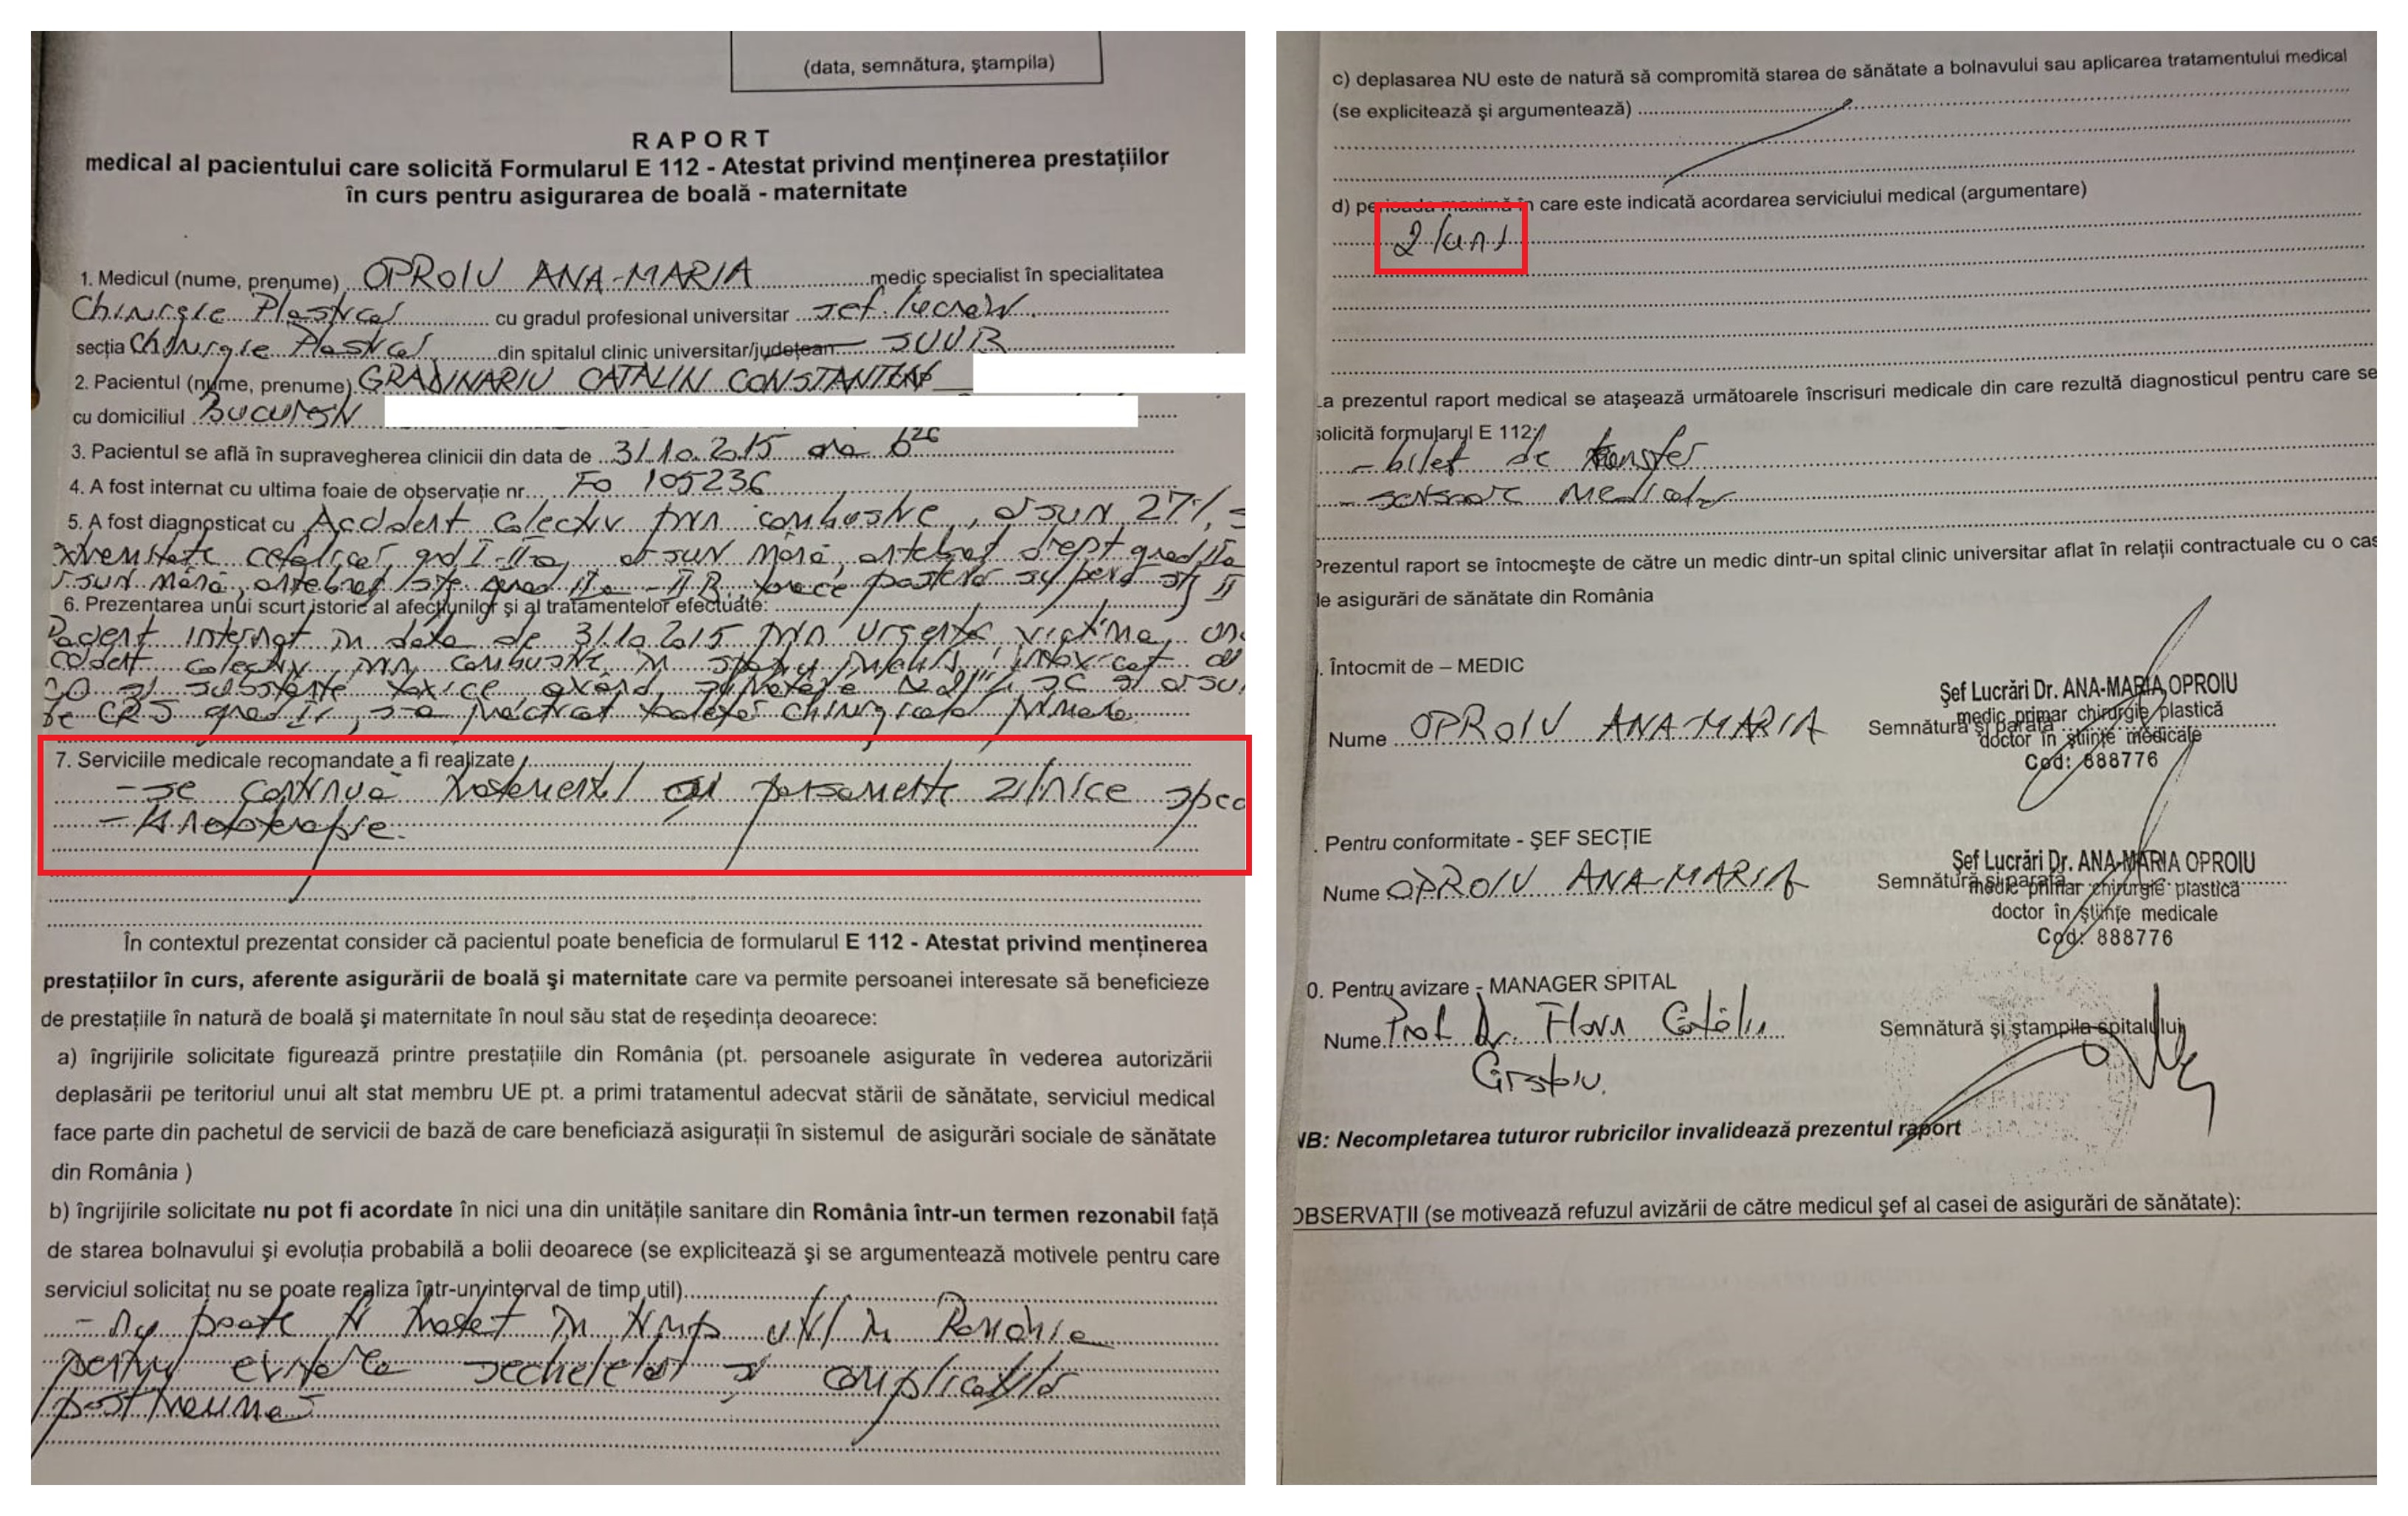 (data, semnătura, ştampila)
RAPORT
medical al pacientului care solicită Formularul E 112 - Atestat privind menţinerea prestaţiilor
în curs pentru asigurarea de boală - maternitate
1. Medicul (nume, prenume) OPROIU ANA-MARIA medic specialist în specialitatea
Chirurgie Plastică cu gradul profesional universitar şef lucrări
secţia Chirurgie Plastică din spitalul clinic universitar/judeţean SUUB
2. Pacientul (nume, prenume) GRADINARIU CATALIN CONSTANTIN
cu domiciliul Bucureşti
3. Pacientul se află în supravegherea clinicii din data de 31.10.2015 ora 6 26
4. A fost internat cu ultima foaie de observaţie nr. FO 105236
5. A fost diagnosticat cu Accident colectiv prin combustie, arsuri 27%
extremitate cefalică, grd I-IIa, arsuri mână, antebraţ drept grad IIa
arsuri mână, antebraţ stg grad IIa - IIB
6. Prezentarea unui scurt istoric al afecţiunilor şi al tratamentelor efectuate:
Pacient internat în data de 31.10.2015 prin urgenţă victima
colectiv prin combustie în spaţiu închis, intoxicat
CO şi substanţe toxice având
de CRS grad II, s-a practicat toaleta chirurgicală primară
7. Serviciile medicale recomandate a fi realizate
- se continuă tratamentul cu pansamente zilnice
- kinetoterapie.
În contextul prezentat consider că pacientul poate beneficia de formularul E 112 - Atestat privind menţinerea
prestaţiilor în curs, aferente asigurării de boală şi maternitate care va permite persoanei interesate să beneficieze
de prestaţiile în natură de boală şi maternitate în noul său stat de reşedinţa deoarece:
a) îngrijirile solicitate figurează printre prestaţiile din România (pt. persoanele asigurate în vederea autorizării
deplasării pe teritoriul unui alt stat membru UE pt. a primi tratamentul adecvat stării de sănătate, serviciul medical
face parte din pachetul de servicii de bază de care beneficiază asiguraţii în sistemul de asigurări sociale de sănătate
din România )
b) îngrijirile solicitate nu pot fi acordate în nici una din unităţile sanitare din România într-un termen rezonabil faţă
de starea bolnavului şi evoluţia probabilă a bolii deoarece (se explicitează şi se argumentează motivele pentru care
serviciul solicitat nu se poate realiza într-un interval de timp util)
- nu poate fi tratat în timp util în România
pentru evitarea sechelelor şi complicaţiilor
posttraumat
c) deplasarea NU este de natură să compromită starea de sănătate a bolnavului sau aplicarea tratamentului medical
(se explicitează şi argumentează)
d) perioada maximă în care este indicată acordarea serviciului medical (argumentare)
2 luni
La prezentul raport medical se ataşează următoarele înscrisuri medicale din care rezultă diagnosticul pentru care se
solicită formularul E 112:
- bilet de transfer
- scrisoare medicală
Prezentul raport se întocmeşte de către un medic dintr-un spital clinic universitar aflat în relaţii contractuale cu o cas
de asigurări de sănătate din România
. Întocmit de – MEDIC
Nume OPROIU ANA-MARIA Semnătura şi parafa
Şef Lucrări Dr. ANA-MARIA OPROIU
medic primar chirurgie plastică
doctor în ştiinţe medicale
Cod: 888776
. Pentru conformitate - ŞEF SECŢIE
Nume OPROIU ANA-MARIA Semnătura şi parafa
Şef Lucrări Dr. ANA-MARIA OPROIU
medic primar chirurgie plastică
doctor în ştiinţe medicale
Cod: 888776
0. Pentru avizare - MANAGER SPITAL
Nume Prof Dr. Florin Cătălin Semnătură şi ştampila spitalului
Cîrstoiu.
NB: Necompletarea tuturor rubricilor invalidează prezentul raport
OBSERVAŢII (se motivează refuzul avizării de către medicul şef al casei de asigurări de sănătate):